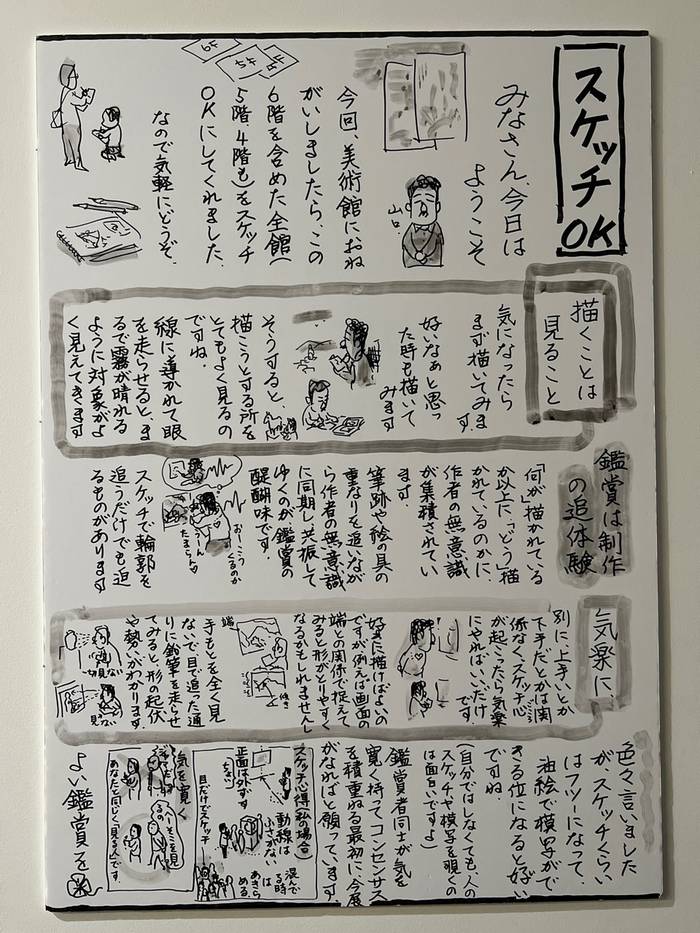 スケッチOK
みなさん、今日は
ようこそ
山口。
今回、美術館におね
がいしましたら、この
6階を含めた全館(
5階、4階も)をスケッチ
OKにしてくれました。
なので気軽にどうぞ。
6F
5F
4F
描くことは
見ること
気になったら
まず描いてみます。
好いなぁと思っ
た時も描いて
みます
そうすると、
描こうとする所を
とてもよく見るの
ですね。
線に導かれて眼
を走らせると、ま
るで霧が晴れる
ように対象がよ
く見えてきます
鑑賞は制作
の追体験
「何が」描かれている
か以上に、「どう」描
かれているのかに、
作者の無意識
が集積されてい
ます。
筆跡や絵の具の
重なりを追いなが
ら作者の無意識
に同期し、共振して
ゆくのが、鑑賞の
醍醐味です。
おーこう
くるのか
うーん
たまらん
スケッチで輪郭を
追うだけでも迫
るものがあります
気楽に
別に上手いとか
下手だとかは関
係なく、スケッチ心
が起こったら気楽
にやればいいだけ
です。
好きに描けばよいの
ですが例えば画面の
端との関係で捉えて
みると形がとりやすく
なるかもしれませんし
端
手もとを全く見
ないで目で追った通
りに鉛筆を走らせ
てみると、形の起伏
や勢いがわかります。
一切見ない
見ない
色々言いました
が、スケッチくらい
はフツーになって、
油絵で模写がで
きる位になると好い
ですね
(自分ではしなくても、人の
スケッチや模写を覗くの
は面白いですよ)
鑑賞者同士が気を
寛く持って、コンセンサス
を積重ねる最初に、今展
がなればと願っています。
スケッチ心得(私の場合)
動線は
ふさがない
正面はゆずる
目だけでスケッチ
混んで
る時
は
あきら
める。
気を寛く
あなたと同じく「見る人」です。
よい鑑賞を